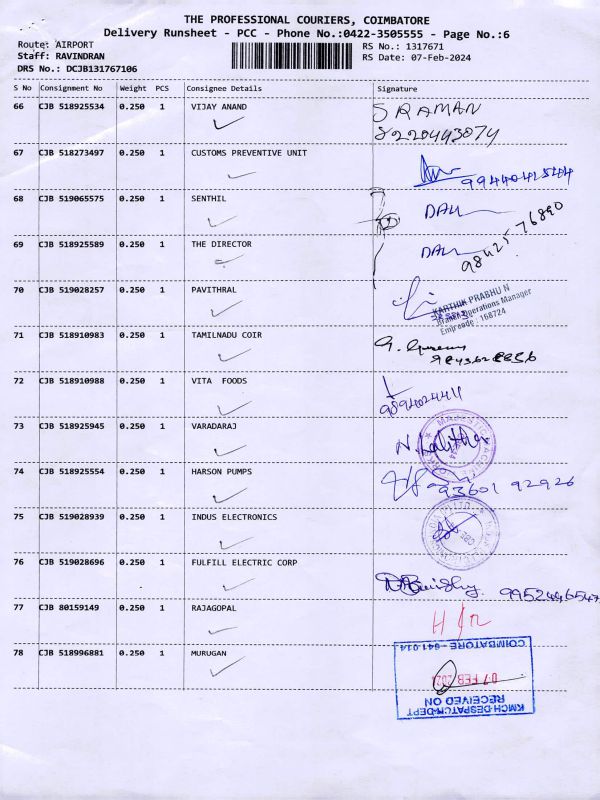 THE PROFESSIONAL COURIERS, COIMBATORE
Delivery Runsheet - PCC - Phone No.:0422-3505555 - Page No.:6
Route: AIRPORT
RS No.: 1317671
Staff: RAVINDRAN
RS Date: 07-Feb-2024
DRS No.: DCJB131767106
S No Consignment No Weight PCS Consignee Details Signature
66 CJB 518925534 0.250 1 VIJAY ANAND SRAMAN
8220493074
67 CJB 518273497 0.250 1 CUSTOMS PREVENTIVE UNIT
68 CJB 519065575 0.250 1 SENTHIL
69 CJB 518925589 0.250 1 THE DIRECTOR
98425 76890
70 CJB 519028257 0.250 1 PAVITHRAL
KARTHIK PRABHU N
Branch Operations Manager
Empcode : 168724
71 CJB 518910983 0.250 1 TAMILNADU COIR
72 CJB 518910988 0.250 1 VITA FOODS
73 CJB 518925945 0.250 1 VARADARAJ
N. Lalitha
74 CJB 518925554 0.250 1 HARSON PUMPS
93601 92926
75 CJB 519028939 0.250 1 INDUS ELECTRONICS
76 CJB 519028696 0.250 1 FULFILL ELECTRIC CORP
77 CJB 80159149 0.250 1 RAJAGOPAL
78 CJB 518996881 0.250 1 MURUGAN
KMCH-DESPATCH-DEPT
RECEIVED ON
07 FEB 2024
COIMBATORE - 641 014